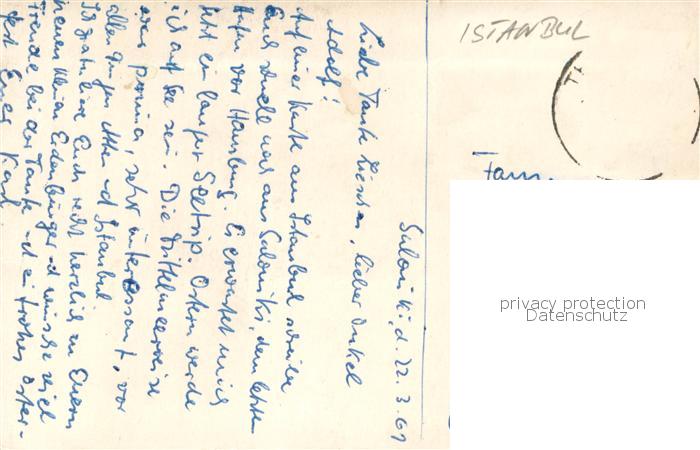 ISTANBUL
Saloniki, d. 22.3.61
Liebe Tante Lieschen, lieber Onkel
Adolf!
Auf einer Karte aus Istanbul schreibe
Euch schnell noch aus Saloniki, dem letzten
Hafen vor Hamburg. Es erwartet mich
jetzt ein langer Seetrip. Ostern werde
ich auf See sein. Die Mittelmeerreise
war prima, sehr interessant, vor
allen Dingen Athen und Istanbul
Ich gratuliere Euch recht herzlich zu Eurem
neuen kleinen Erdenbürger und wünsche viel
Freude bei der Taufe und ein frohes Oster-
fest Euer Karl
Fam.
privacy protection
Datenschutz